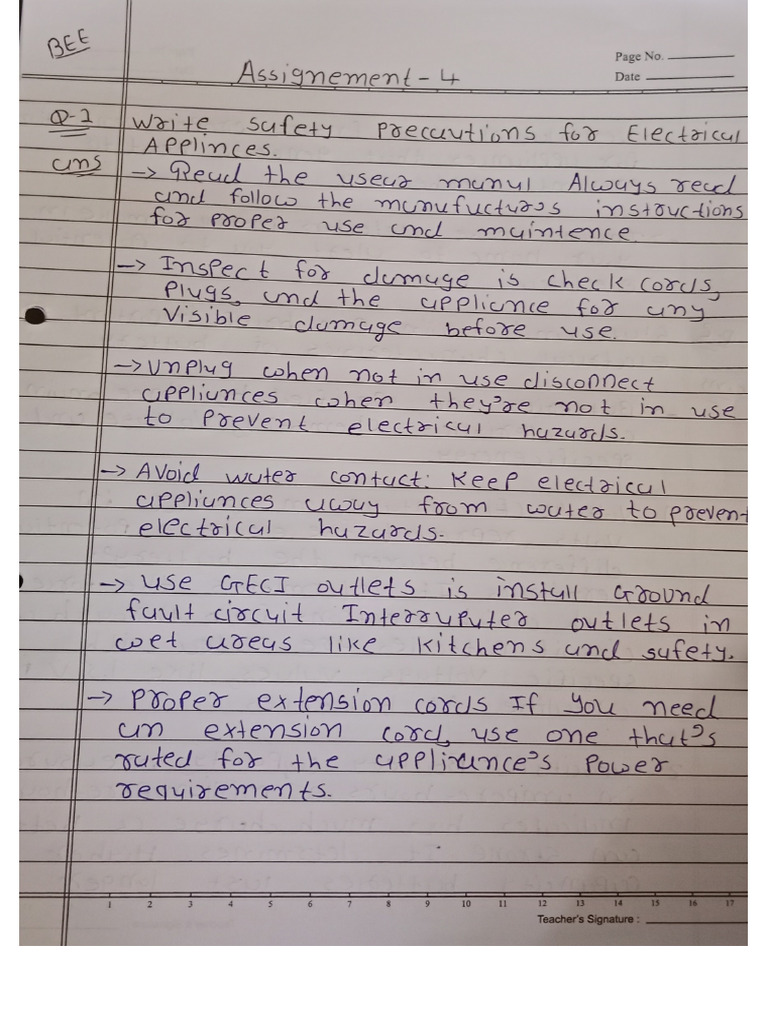 BEE
Page No.
Assignement - 4
Date
Q-1 Write safety precautions for Electrical
Applinces.
ans → Read the usear manul Always read
and follow the manufucturs instructions
for proper use and maintence.
→ Inspect for damage is check cords,
plugs, and the appliance for any
visible damage before use.
→ Unplug when not in use disconnect
appliances when they're not in use
to prevent electrical hazards.
→ Avoid water contact: Keep electrical
appliances away from water to prevent
electrical hazards.
→ use GECI outlets is install Ground
fault circuit Interruputer outlets in
wet areas like kitchens and safety.
→ Proper extension cords If you need
an extension cord, use one that's
rated for the appliance's power
requirements.
1 2 3 4 5 6 7 8 9 10 11 12 13 14 15 16 17
Teacher's Signature :